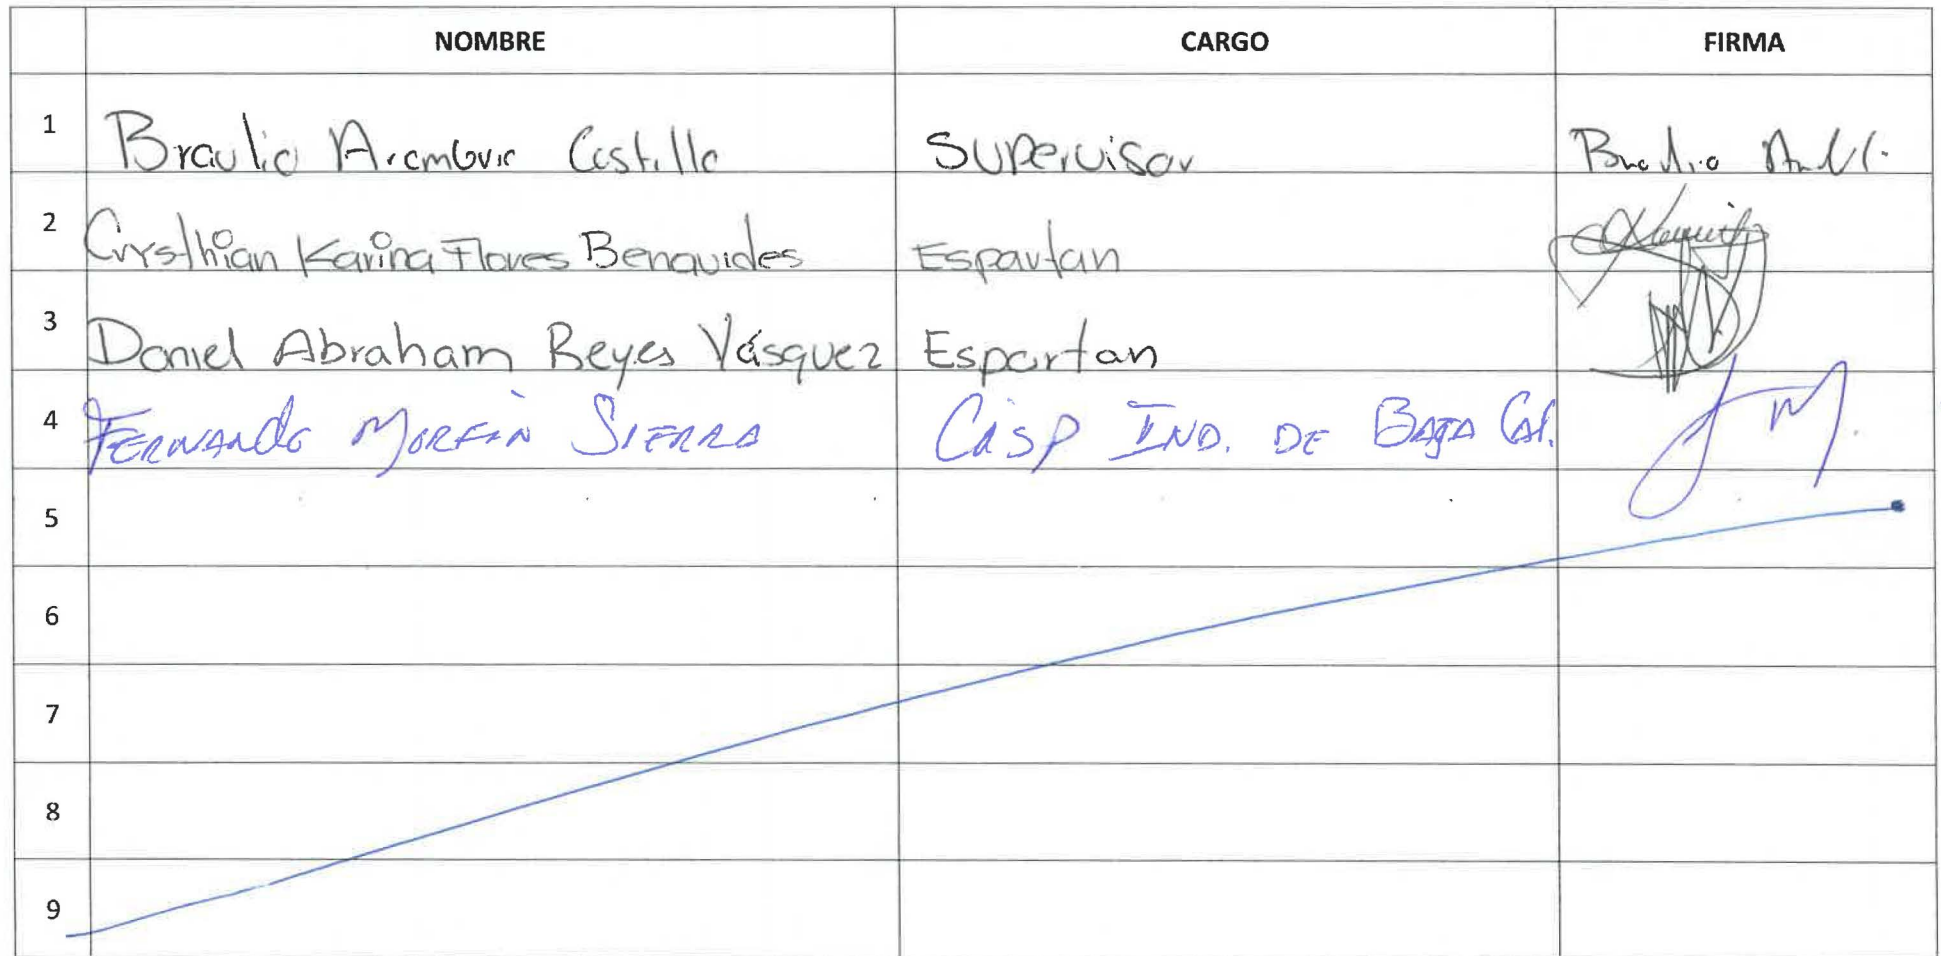 NOMBRE CARGO FIRMA
1 Braulio Arambura Castillo Supervisor Braulio
2 Crysthian Karina Flores Benavides Espartan
3 Daniel Abraham Reyes Vásquez Espartan
4 FERNANDO MORFÍN SIERRA CASP IND. DE BAJA CAL. M.
5
6
7
8
9